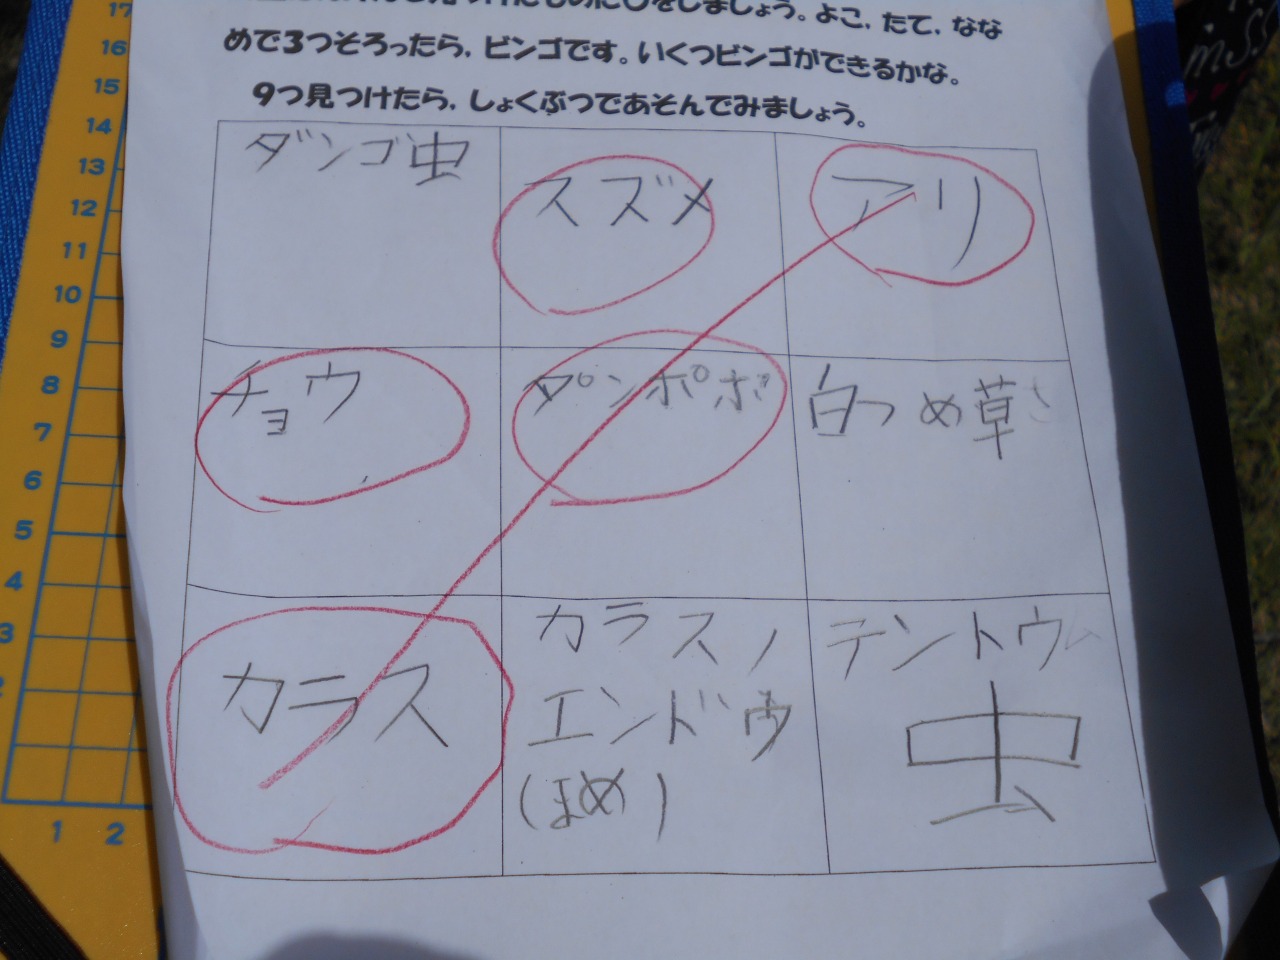 をしましょう。よこ，たて，なな
めで３つそろったら，ビンゴです。いくつビンゴができるかな。
９つ見つけたら，しょくぶつであそんでみましょう。
ダンゴ虫
スズメ
アリ
チョウ
タンポポ
白つめ草
カラス
カラスノ
エンドウ
(まめ)
テントウ
虫
17
16
15
14
13
12
11
10
9
8
7
6
5
4
3
2
1 2